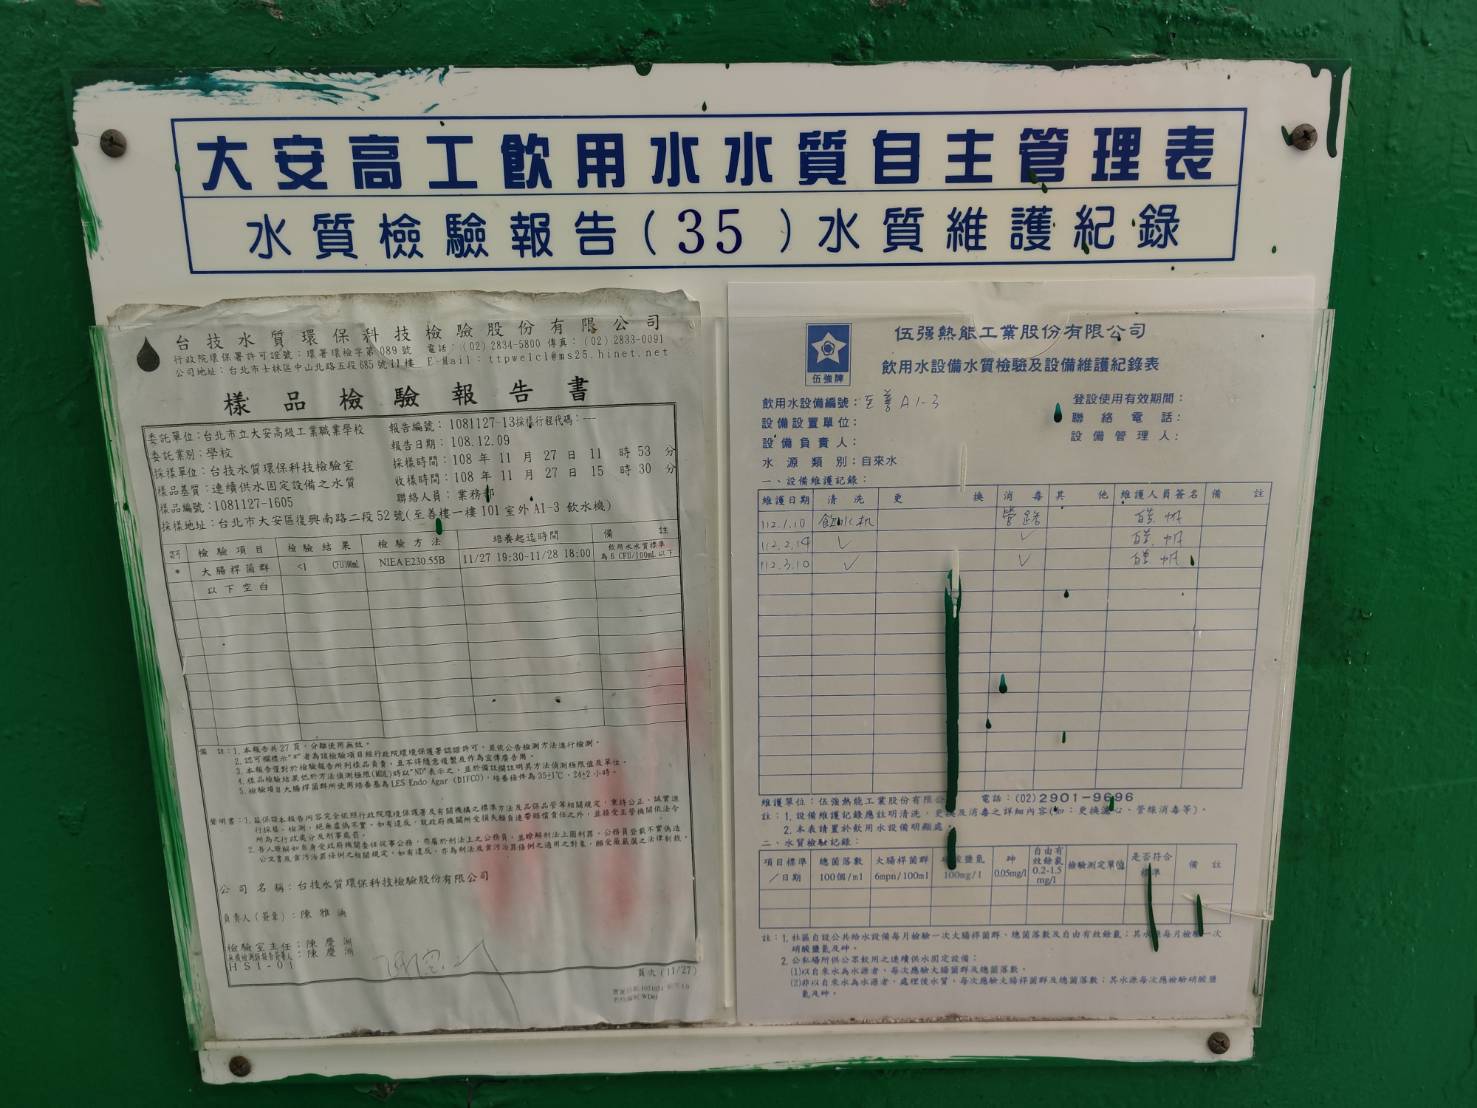 大安高工飲用水水質自主管理表
水質檢驗報告(35)水質維護紀錄
台技水質環保科技檢驗股份有限公司
行政院環保署許可證號：環署環檢字第089號 電話：(02)2834-5800 傳真：(02)2833-0091
公司地址：台北市士林區中山北路五段685號11樓 E-Mail：ttpwelcl@ms25.hinet.net
樣品檢驗報告書
委託單位：台北市立大安高級工業職業學校
委託業別：學校
採樣單位：台技水質環保科技檢驗室
樣品基質：連續供水固定設備之水質
樣品編號：1081127-1605
採樣地址：台北市大安區復興南路二段52號(至善樓一樓101室外A1-3飲水機)
報告編號：1081127-13採樣行程代碼：---
報告日期：108.12.09
採樣時間：108 年 11 月 27 日 11 時 53 分
收樣時間：108 年 11 月 27 日 15 時 30 分
聯絡人員：業務部
檢驗項目 檢驗結果 檢驗方法 培養起迄時間 備註
* 大腸桿菌群 <1 CFU/100mL NIEA E230.55B 11/27 19:30-11/28 18:00 飲用水水質標準為6 CFU/100mL以下
以下空白
備註：1.本報告共27頁，分離使用無效。
2.認可欄標示"*"者為該檢驗項目經行政院環境保護署認證許可，並依公告檢測方法進行檢測。
3.本報告僅對於檢驗報告所列樣品負責，且不得隨意複製及作為宣傳廣告用。
4.樣品檢驗結果低於方法偵測極限(MDL)時以"ND"表示之，並於備註欄註明其方法偵測極限值及單位。
5.檢驗項目大腸桿菌群所使用培養基為LES Endo Agar (DIFCO)，培養條件為35±1℃，24±2小時。
公司名稱：台技水質環保科技檢驗股份有限公司
負責人(簽章)：陳雅
檢驗室主任：陳慶
HSI-01
頁次(11/27)
伍強牌
伍强熱能工業股份有限公司
飲用水設備水質檢驗及設備維護紀錄表
飲用水設備編號：至善A1-3
設備設置單位：
設備負責人：
水源類別：自來水
登設使用有效期間：
聯絡電話：
設備管理人：
一、設備維護記錄：
維護日期 清洗 更換 消毒 其他 維護人員簽名 備註
112.1.10 飲水机 管路
112.2.14 ✓ ✓
112.3.10 ✓ ✓
維護單位：伍強熱能工業股份有限公 電話：(02)2901-9696
註：1.設備維護記錄應註明清洗、更換及消毒之詳細內容(如：更換濾心、管線消毒等)。
2.本表請置於飲用水設備明顯處。
二、水質檢驗記錄：
項目標準／日期 總菌落數100個/ml 大腸桿菌群6mpn/100ml 硝酸鹽氮100mg/l 砷0.05mg/l 自由有效餘氯0.2-1.5mg/l 檢驗測定單位 是否符合標準 備註
註：1.社區自設公共給水設備每月檢驗一次大腸桿菌群、總菌落數及自由有效餘氯；其水源每月檢驗一次
硝酸鹽氮及砷。
2.公私場所供公眾飲用之連續供水固定設備：
(1)以自來水為水源者，每次應驗大腸桿菌群及總菌落數。
(2)非以自來水為水源者，處理後水質，每次應驗大腸桿菌群及總菌落數；其水源每次應檢驗硝酸鹽
氮及砷。